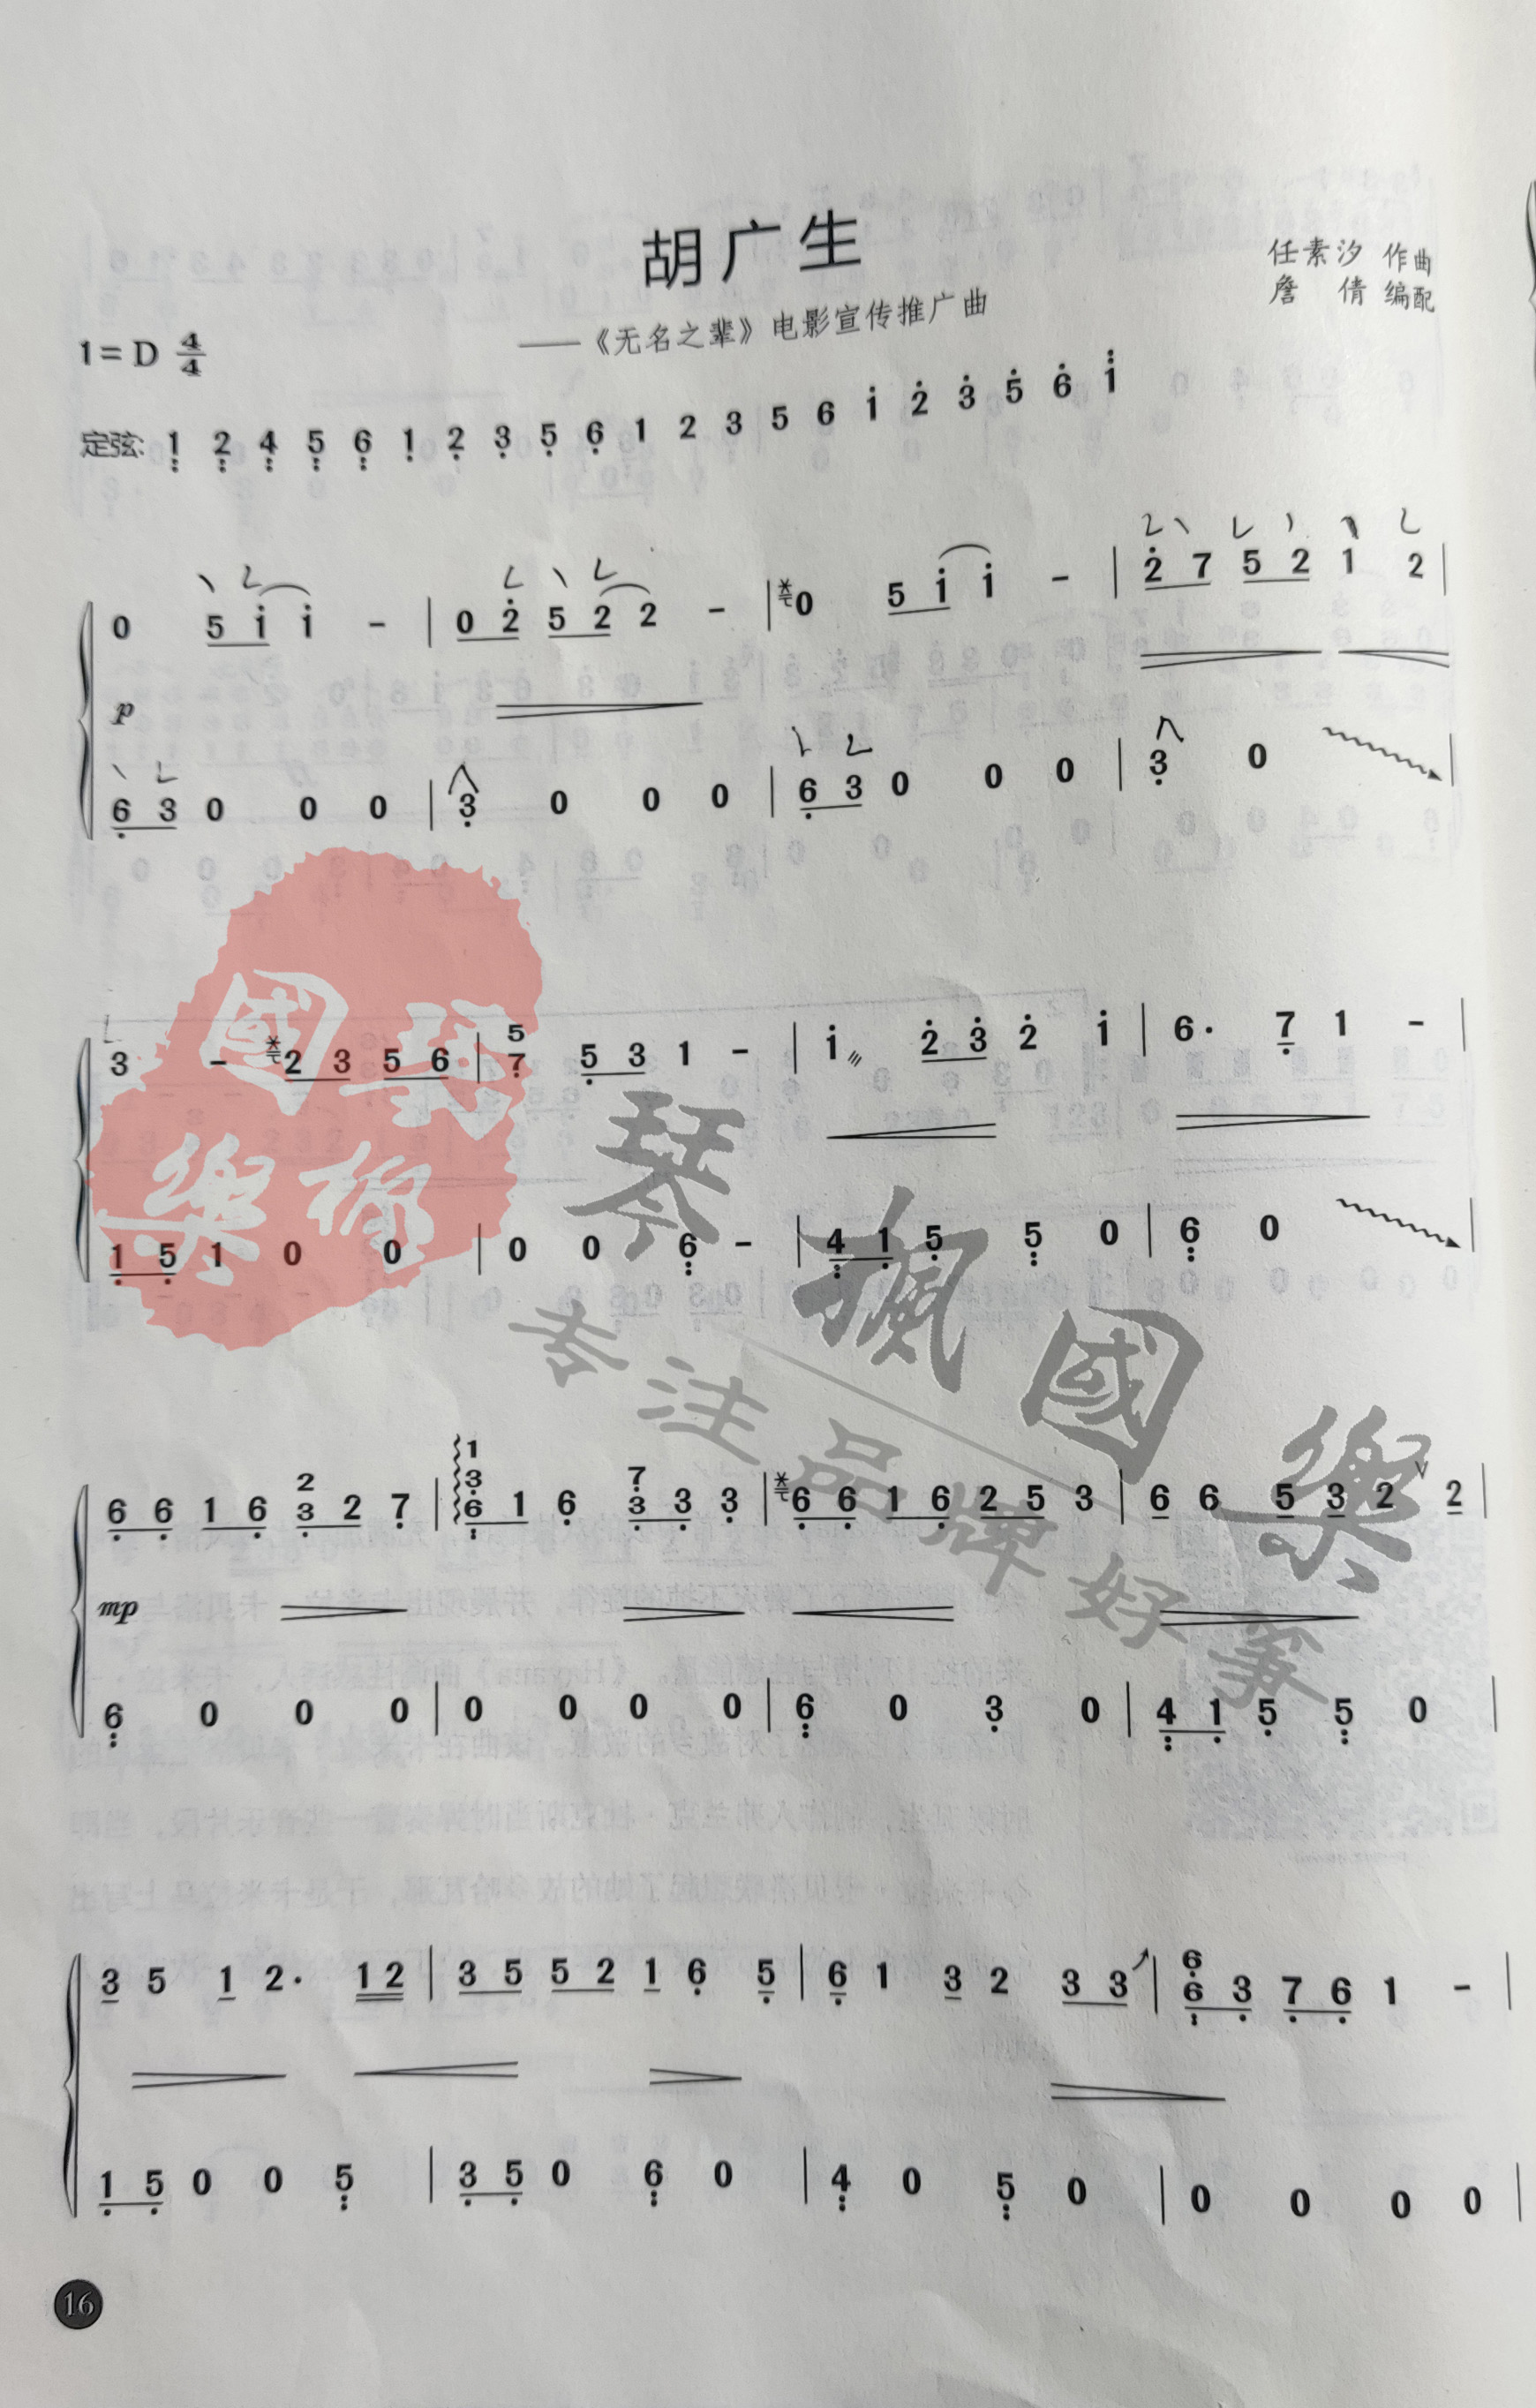 胡广生
——《无名之辈》电影宣传推广曲
任素汐 作曲
詹 倩 编配
1=D 4/4
定弦: 1̤ 2̤ 4̤ 5̤ 6̤ 1̣ 2̣ 3̣ 5̣ 6̣ 1 2 3 5 6 1̇ 2̇ 3̇ 5̇ 6̇ 1̈
0 5 1̇ 1̇ - | 0 2̇ 5 2 2 - | 0 5 1̇ 1̇ - | 2̇ 7 5 2 1 2 |
p
6̣ 3 0 0 0 | 3̣ 0 0 0 | 6̣ 3 0 0 0 | 3̣ 0 |
3 - 2 3 5 6 | 5 7̣ 5̣ 3 1 - | 1̇ 2̇ 3̇ 2̇ 1̇ | 6· 7̣ 1 - |
1̣ 5̣ 1 0 0 | 0 0 6̤ - | 4̤ 1̣ 5̣ 5̤ 0 | 6̤ 0 |
6̣ 6̣ 1 6̣ 2 3̣ 2 7̣ | 1 3̣ 6̤ 1 6̣ 7̣ 3̣ 3̣ 3̣ | 6̣ 6̣ 1 6̣ 2 5 3 | 6 6 5 3 2 V 2 |
mp
6̤ 0 0 0 | 0 0 0 0 | 6̤ 0 3̣ 0 | 4̤ 1̣ 5̣ 5̤ 0 |
3 5 1 2· 1 2 | 3 5 5 2 1 6̣ 5̣ | 6̣ 1 3 2 3 3 | 6̣ 6̤ 3̣ 7̣ 6̣ 1 - |
1̣ 5̣ 0 0 5̤ | 3̣ 5̣ 0 6̤ 0 | 4̤ 0 5̤ 0 | 0 0 0 0 |
16
琴枫國樂
专注品牌好筝